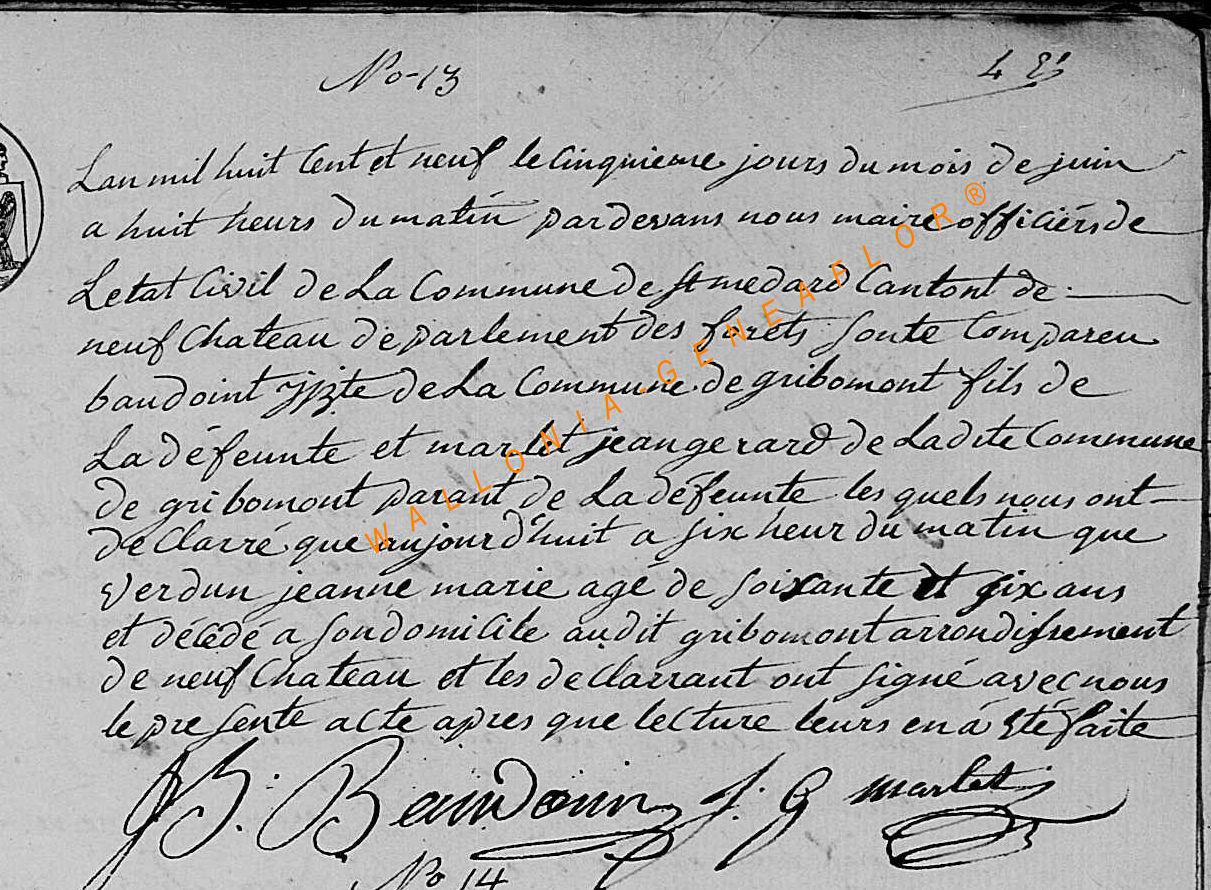 No-13
Lan mil huit Cent et neuf le Cinquieme jours du mois de juin
a huit heurs du matin pardevans nous maire officiérs de
Letat Civil de La Commune de St medard Cantont de
neuf Chateau departement des forets sonte Compareu
baudoint de La Commune de gribomont fils de
La défeunte et martet jean gerard de Ladite Commune
de gribomont parant de La défeunte les quels nous ont
de Clarré que aujourd'huit a six heur du matin que
verdun jeanne marie agé de soixante et six ans
et décédé a son domicile audit gribomont arrondissement
de neuf Chateau et les declarrant ont signé avec nous
le presente acte apres que lecture leurs en á été faite
J B. Baudouin J. G martet
No 14
WALLONIA-GENEAFLOR®